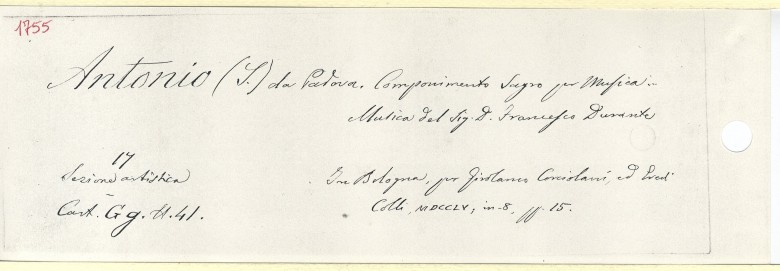 1755
Antonio (S.) da Padova. Componimento Sagro per Musica.
Musica del Sig. D. Francesco Durante
17
Sezione artistica
In Bologna, per Girolamo Corciolani, ed Eredi
Cart. Gg. II. 41.
Colli, MDCCLV; in-8, pp. 15.